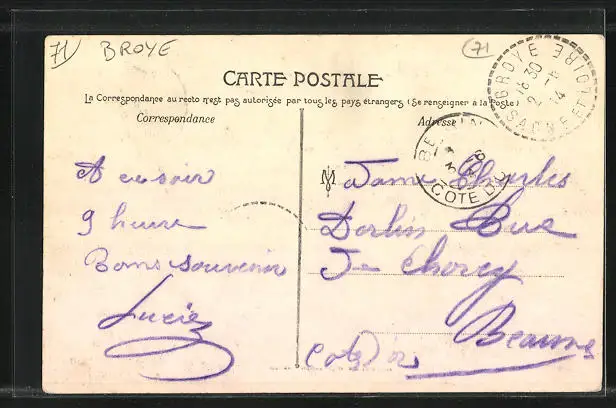 71 BROYE
71
CARTE POSTALE
La Correspondance au recto n'est pas autorisée par tous les pays étrangers (Se renseigner à la Poste)
Correspondance
Adresse
BROYE
16 30
2 - 6
14
SAONE ET LOIRE
COTE D'OR
A ce soir
9 heure
Bons souvenir
Lucie
Madame Charles
Dorlin Rue
De Chorey
Beaune
Cote d'or